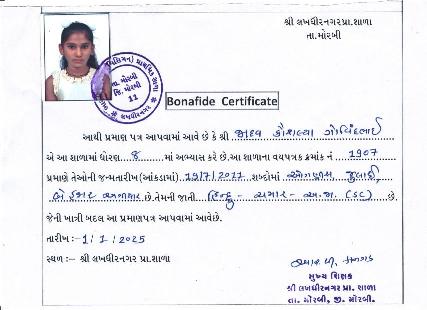 શ્રી લખધીરનગર પ્રા.શાળા
તા.મોરબી
તા. મોરબી
જિ. મોરબી
11
Bonafide Certificate
આથી પ્રમાણ પત્ર આપવામાં આવે છે કે શ્રી જાદવ કૌશલ્યા ગોવિંદભાઈ
એ આ શાળામાં ધોરણ ૮ માં અભ્યાસ કરે છે.આ શાળાના વયપત્રક ક્રમાંક નં 1907
પ્રમાણે તેઓની જન્મતારીખ (આંકડામાં). 19/7/2011 શબ્દોમાં ઓગણીસ, જુલાઈ,
બે હજાર અગિયાર છે.તેમની જાતી હિન્દુ - ચમાર - અ.જા. (SC) છે
જેની ખાત્રી બદલ આ પ્રમાણપત્ર આપવામાં આવેછે.
તારીખ :- 1/1/2025
સ્થળ :- શ્રી લખધીરનગર પ્રા.શાળા
મુખ્ય શિક્ષક
શ્રી લખધીરનગર પ્રા. શાળા
તા. મોરબી, જી. મોરબી.